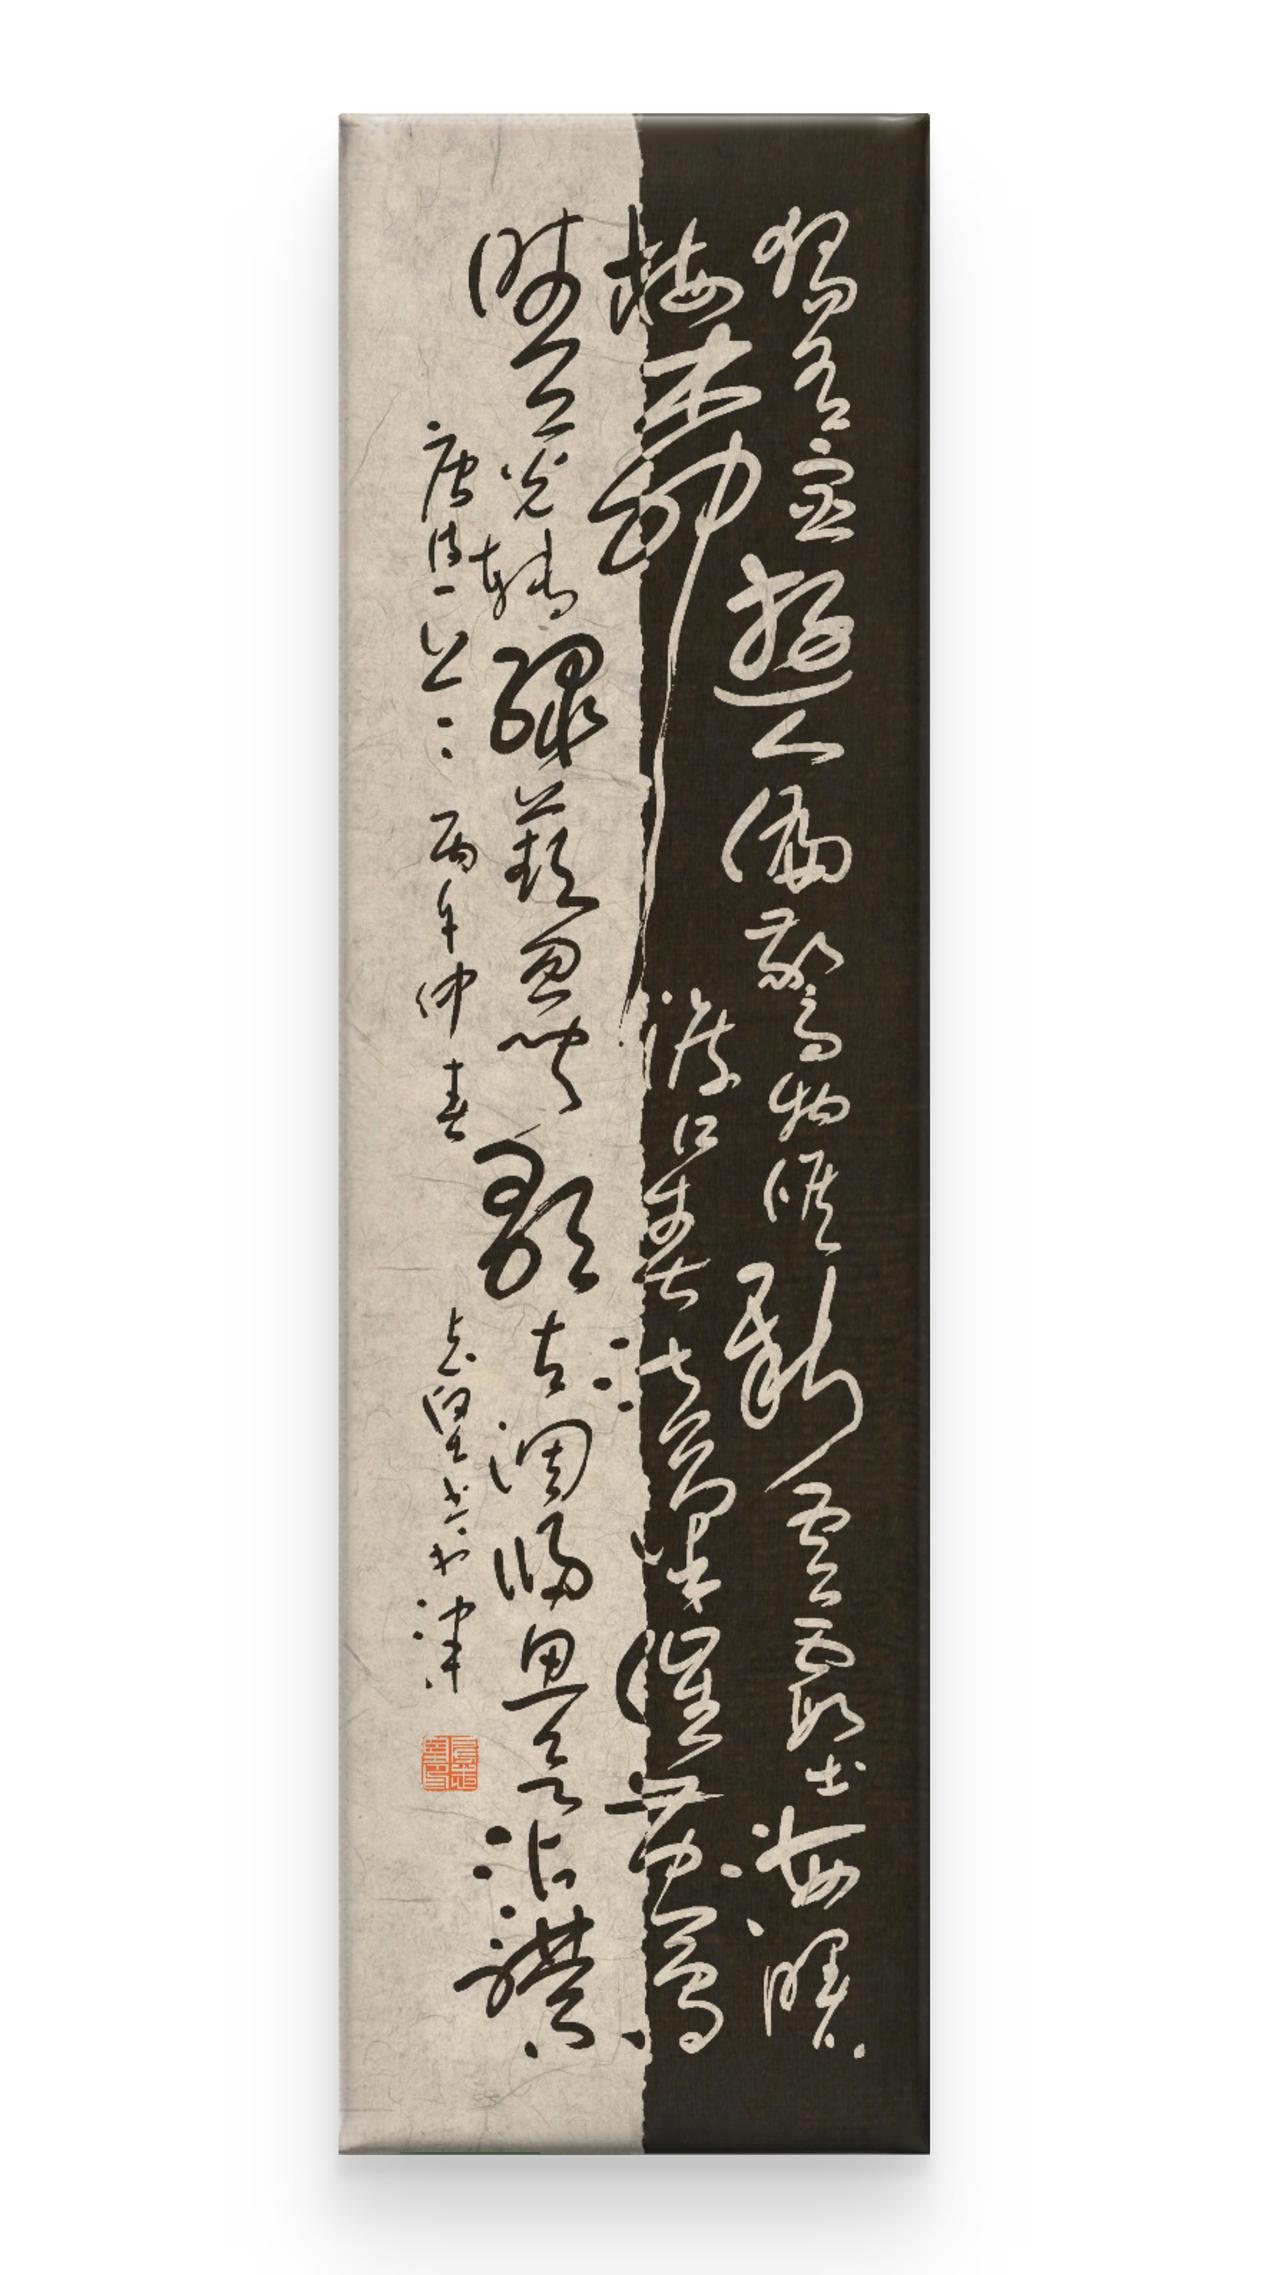 獨有宦遊人偏驚物候新雲霞出海曙
梅柳渡江春淑氣催黃鳥
晴光轉綠蘋忽聞歌古調歸思欲沾襟
唐詩一首 丙午仲春 書於津